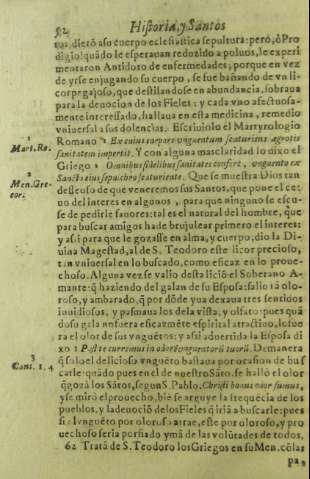 52 Historia, y Santos
tos, dierõ a su cuerpo eclesiastica sepultura: però, ò Pro
digio! quãdo le esperauan reduzido a poluos, le experi
mentaron Antidoto de enfermedades; porque en vez
de yrse enjugando su cuerpo, se fue bañando de vn li-
cor pegajoso, que destilandose en abundancia, sobraua
para la deuocion de los Fieles: y cada vno afectuosa-
mente interessado, hallaua en esta medicina, remedio
vniuersal a sus dolencias. Escriuiolo el Martyrologio
1
Mart. Ro.
Romano 1 Ex cuius corpore vnguentum scaturiens agrotis
sanitatem impertit. Y con alguna mas claridad lo dixo el
2
Men. Gre-
cor.
Griego 2 Omnibus fidelibus sanitates confert, vnguento ex
Sanctis eius sepulchro scaturiente. Que se muestra Dios tan
desseoso de que veneremos sus Santos, que pone el ce-
uo del interes en algunos, para que ninguno se escu-
se de pedirle fauores: tal es el natural del hombre, que
para buscar amigos ha de brujulear primero el interes:
y assi para que le gozasse en alma, y cuerpo, dio la Di-
uina Magestad, al de S. Teodoro este licor precioso,
tan vniuersal en lo buscado, como eficaz en lo proue-
choso. Alguna vez se valio desta licio el Soberano A-
mante: q̃ haziendo del galan de su Esposa: salio tã olo-
roso, y ambarado, q̃ por dõde yua dexaua tres sentidos
inuidiosos, y pasmaua los de la vista, y olfato: pues quã
do su gala no fuera eficazmẽte espiritual atractiuo, lo fue
ra el olor de sus vnguẽtos: y assi aduertida la Esposa di
3
Cant. 1. 4
xo 3 Post te curremus in odorẽ vnguentorũ tuorũ. De manera
q̃ solo el delicioso vnguẽto bastaua por ocasion de bus
carle: quãdo pues en el de nuestro Sãto, se hallò el olor
q̃ goza los Sãtos, segun S. Pablo. Christi bonus odor sumus,
y se mirò el prouecho, biẽ se arguye la frequẽcia de los
pueblos, y la deuociõ de los Fieles q̃ iriã a buscarle: pues
si el vnguẽto por oloroso atrae, este por oloroso, y pro
uechoso seria porfiado ymã de las volũtades de todos,
62 Tratã de S. Teodoro los Griegos en su Men. cõ las
pa-